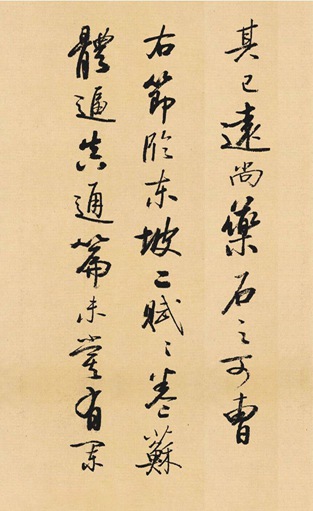 其已遠尚藥石之可曹
右節臨東坡二賦之卷蘇
體逼真通篇未嘗有